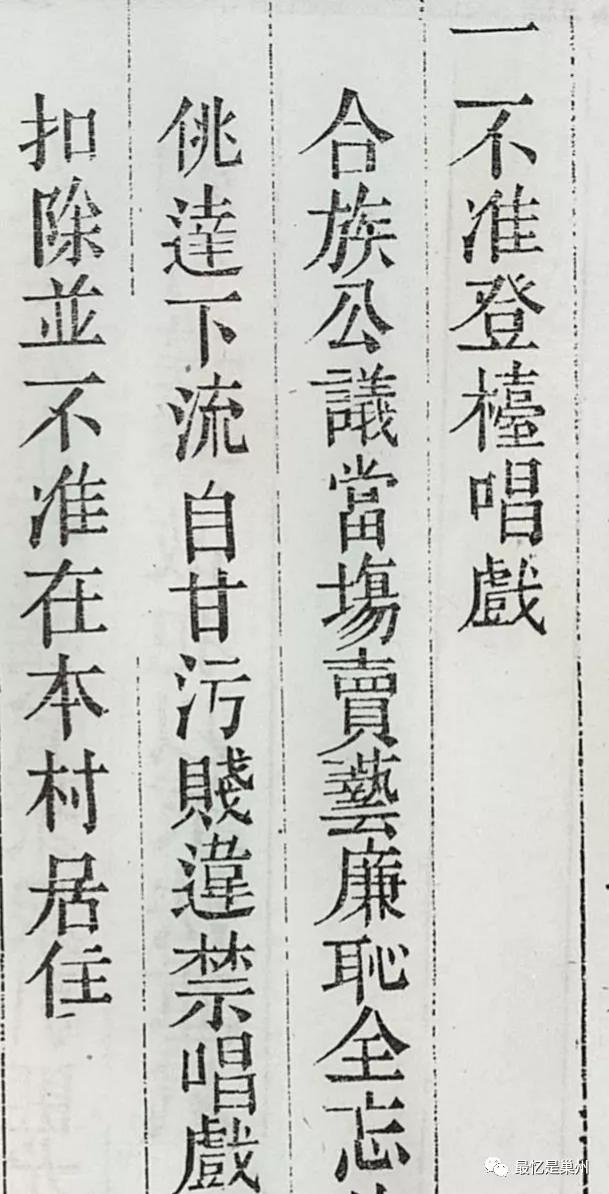 一不准登檯唱戲
合族公議當塲賣藝廉恥全忘
佻達下流自甘污賤違禁唱戲
扣除並不准在本村居住
最忆是巢州